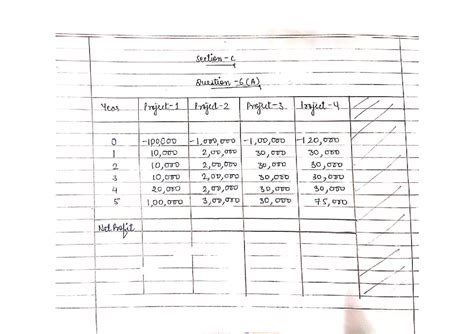 Section-C
Question-6(A)
Year Project-1 Project-2 Project-3 Project-4
0 -100,000 -1,000,000 -1,00,000 -120,000
1 10,000 2,00,000 30,000 30,000
2 10,000 2,00,000 30,000 30,000
3 10,000 2,00,000 30,000 30,000
4 20,000 2,00,000 30,000 30,000
5 1,00,000 3,00,000 30,000 75,000
Net Profit